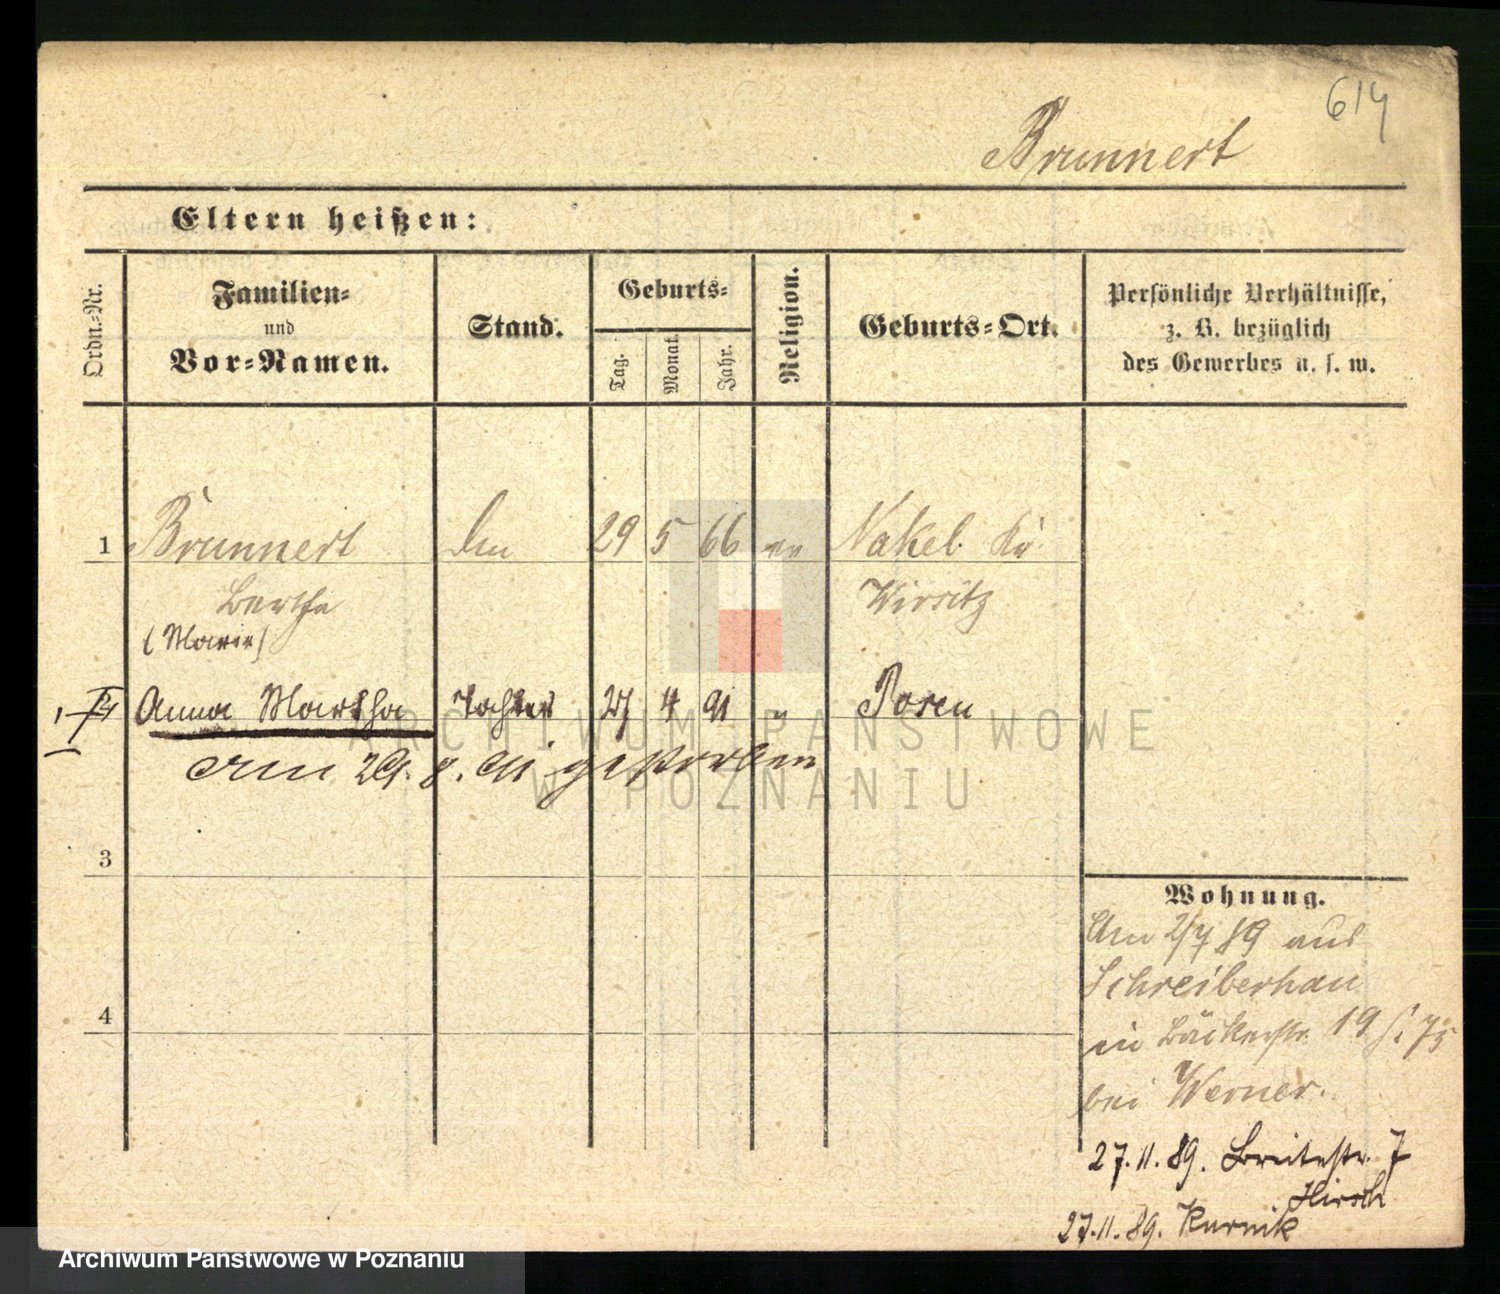 614
Brunnert
Eltern heißen:
Ordn.-Nr.
Familien-
und
Vor-Namen.
Stand.
Geburts-
Tag.
Monat.
Jahr.
Religion.
Geburts-Ort.
Persönliche Verhältnisse,
z. B. bezüglich
des Gewerbes u. s. w.
1 Brunnert 29 5 66 ev Nakel Kr.
Bertha Wirsitz
(Marie)
Anna Martha Tochter 27 4 91 " Posen
am 29. 8. 91 gestorben
3
4
Wohnung.
Am 2/7 89 aus
Schreiberhau
in Bäckerstr. 19
bei Werner.
27.11.89. Breitestr. 7
Hirsch
27.11.89. Kurnik
ARCHIWUM PAŃSTWOWE
W POZNANIU
Archiwum Państwowe w Poznaniu